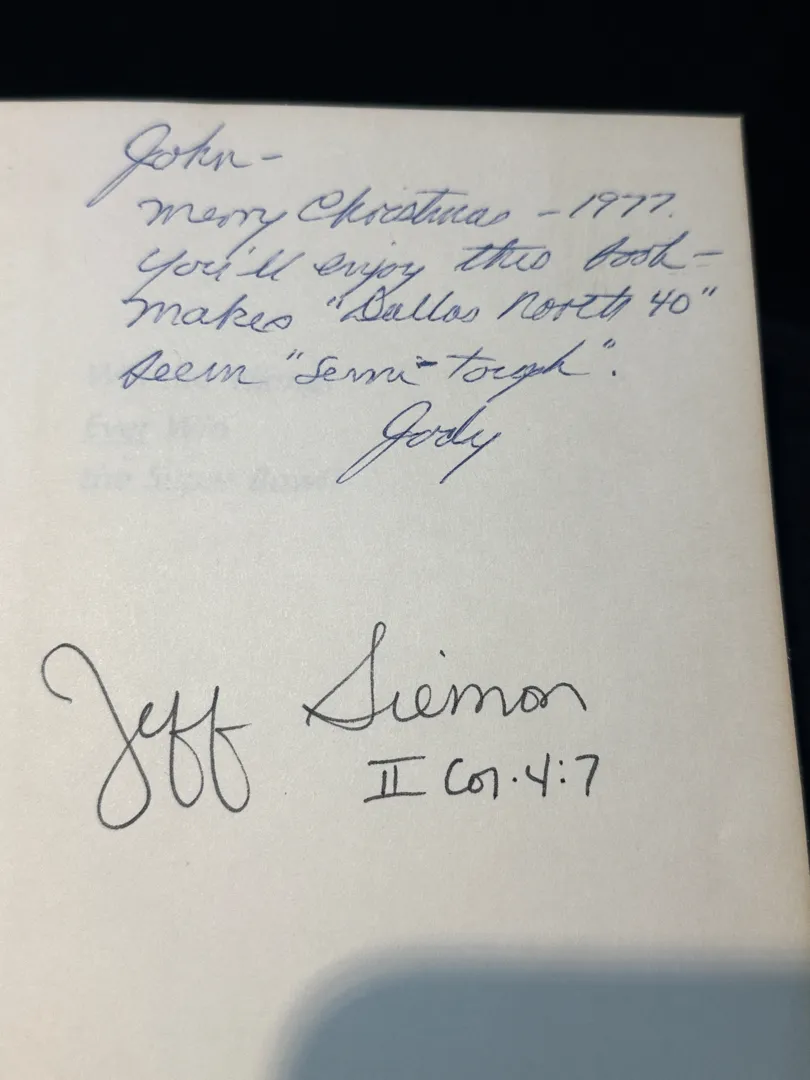 John-
Merry Christmas - 1977.
You'll enjoy this book-
makes "Dallas North 40"
seem "Semi-Tough".
Jody
Ever Win
the Super Bowl
Jeff Siemon
II Cor. 4:7